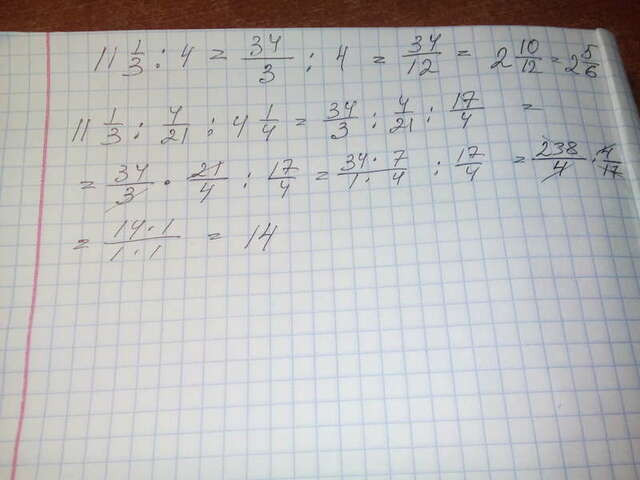 11 1/3 : 4 = 34/3 : 4 = 34/12 = 2 10/12 = 2 5/6
11 1/3 : 4/21 : 4 1/4 = 34/3 : 4/21 : 17/4 =
= 34/3 · 21/4 : 17/4 = 34·7/1·4 : 17/4 = 238/4 : 4/17
= 14·1/1·1 = 14